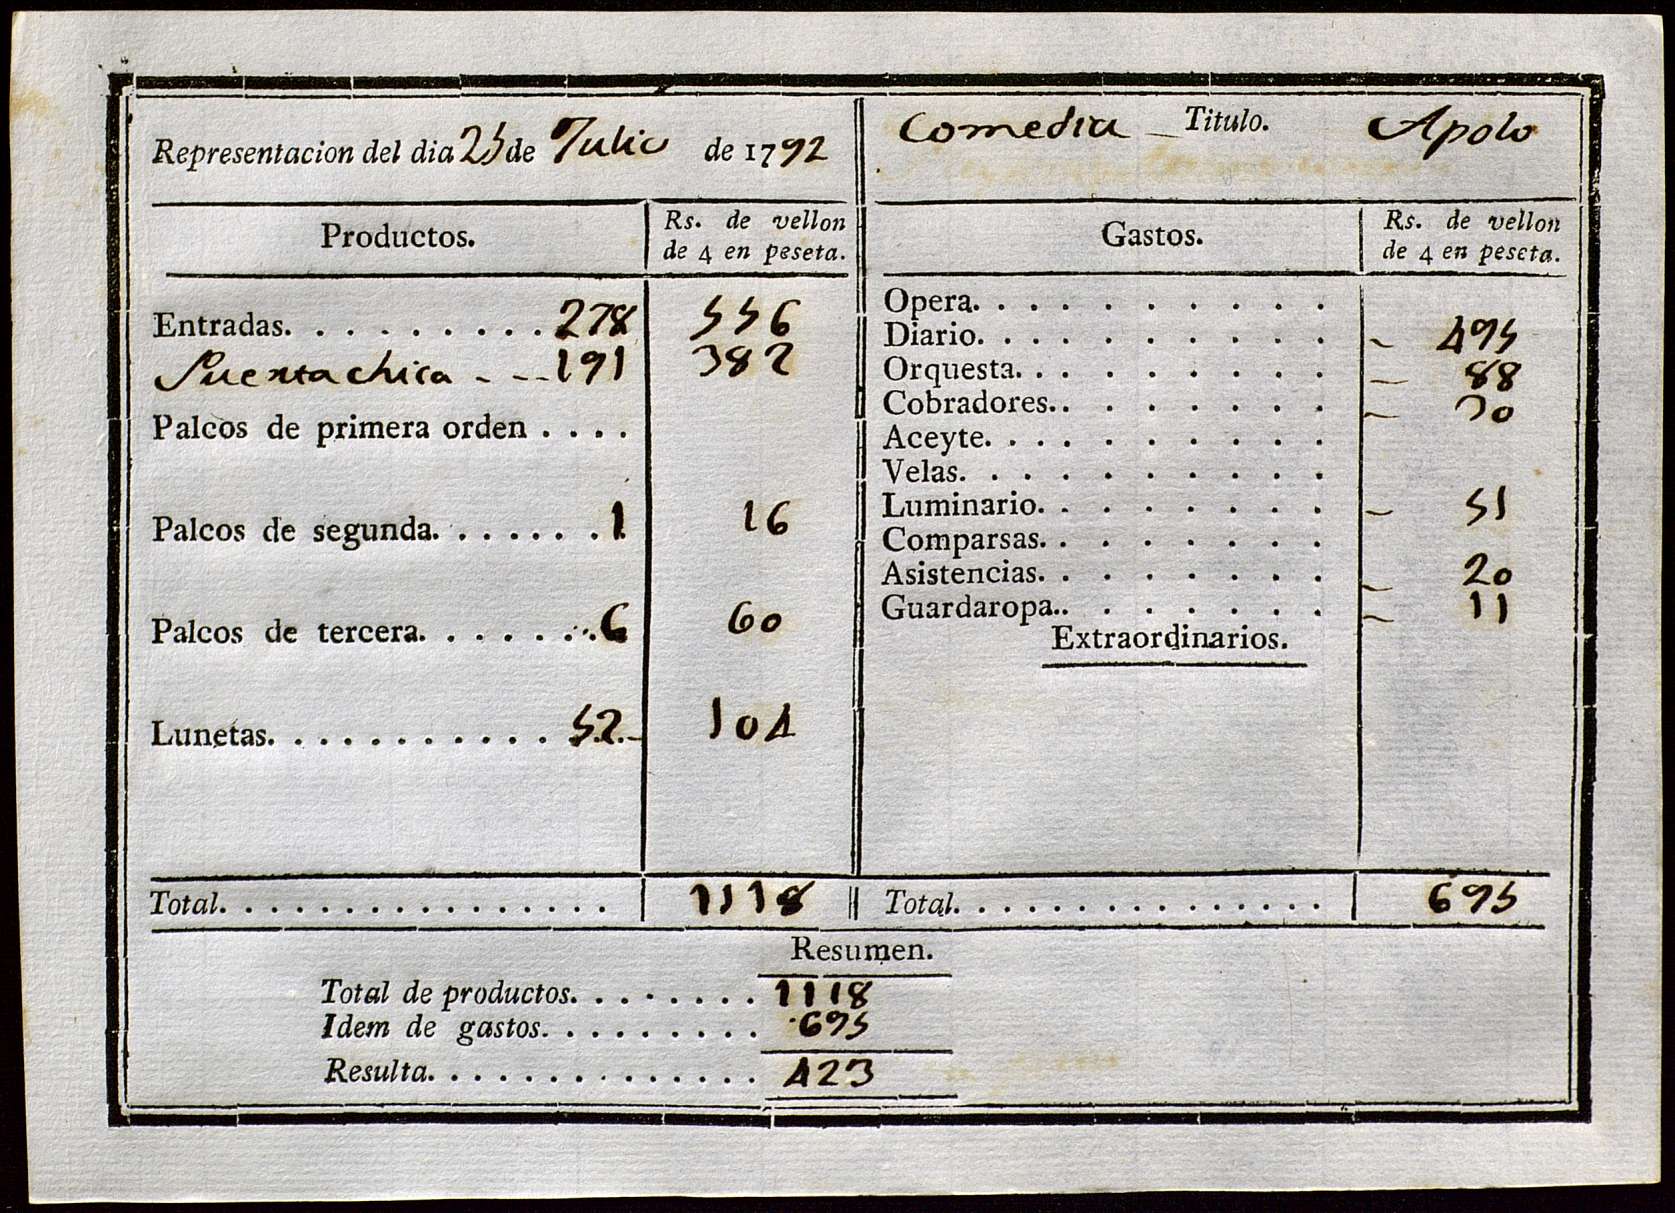 Representacion del dia 25 de Julio de 1792
Productos.
Rs. de vellon
de 4 en peseta.
Entradas. . . . . . . . . 278 556
Puerta chica - -- 191 382
Palcos de primera orden . . . .
Palcos de segunda. . . . . . . 1 16
Palcos de tercera. . . . . . . 6 60
Lunetas. . . . . . . . . . . . 52 104
Total. . . . . . . . . . . . . . . . 1118
Comedia _ Titulo. Apolo
Gastos.
Rs. de vellon
de 4 en peseta.
Opera. . . . . . . . . .
Diario. . . . . . . . . . 495
Orquesta. . . . . . . . . 88
Cobradores.. . . . . . . 30
Aceyte. . . . . . . . . .
Velas. . . . . . . . . .
Luminario. . . . . . . . 51
Comparsas. . . . . . . .
Asistencias. . . . . . . . 20
Guardaropa.. . . . . . . 11
Extraordinarios.
Total. . . . . . . . . . . . . . . 695
Resumen.
Total de productos. . . . . . . . 1118
Idem de gastos. . . . . . . . . . 695
Resulta. . . . . . . . . . . . . . 423